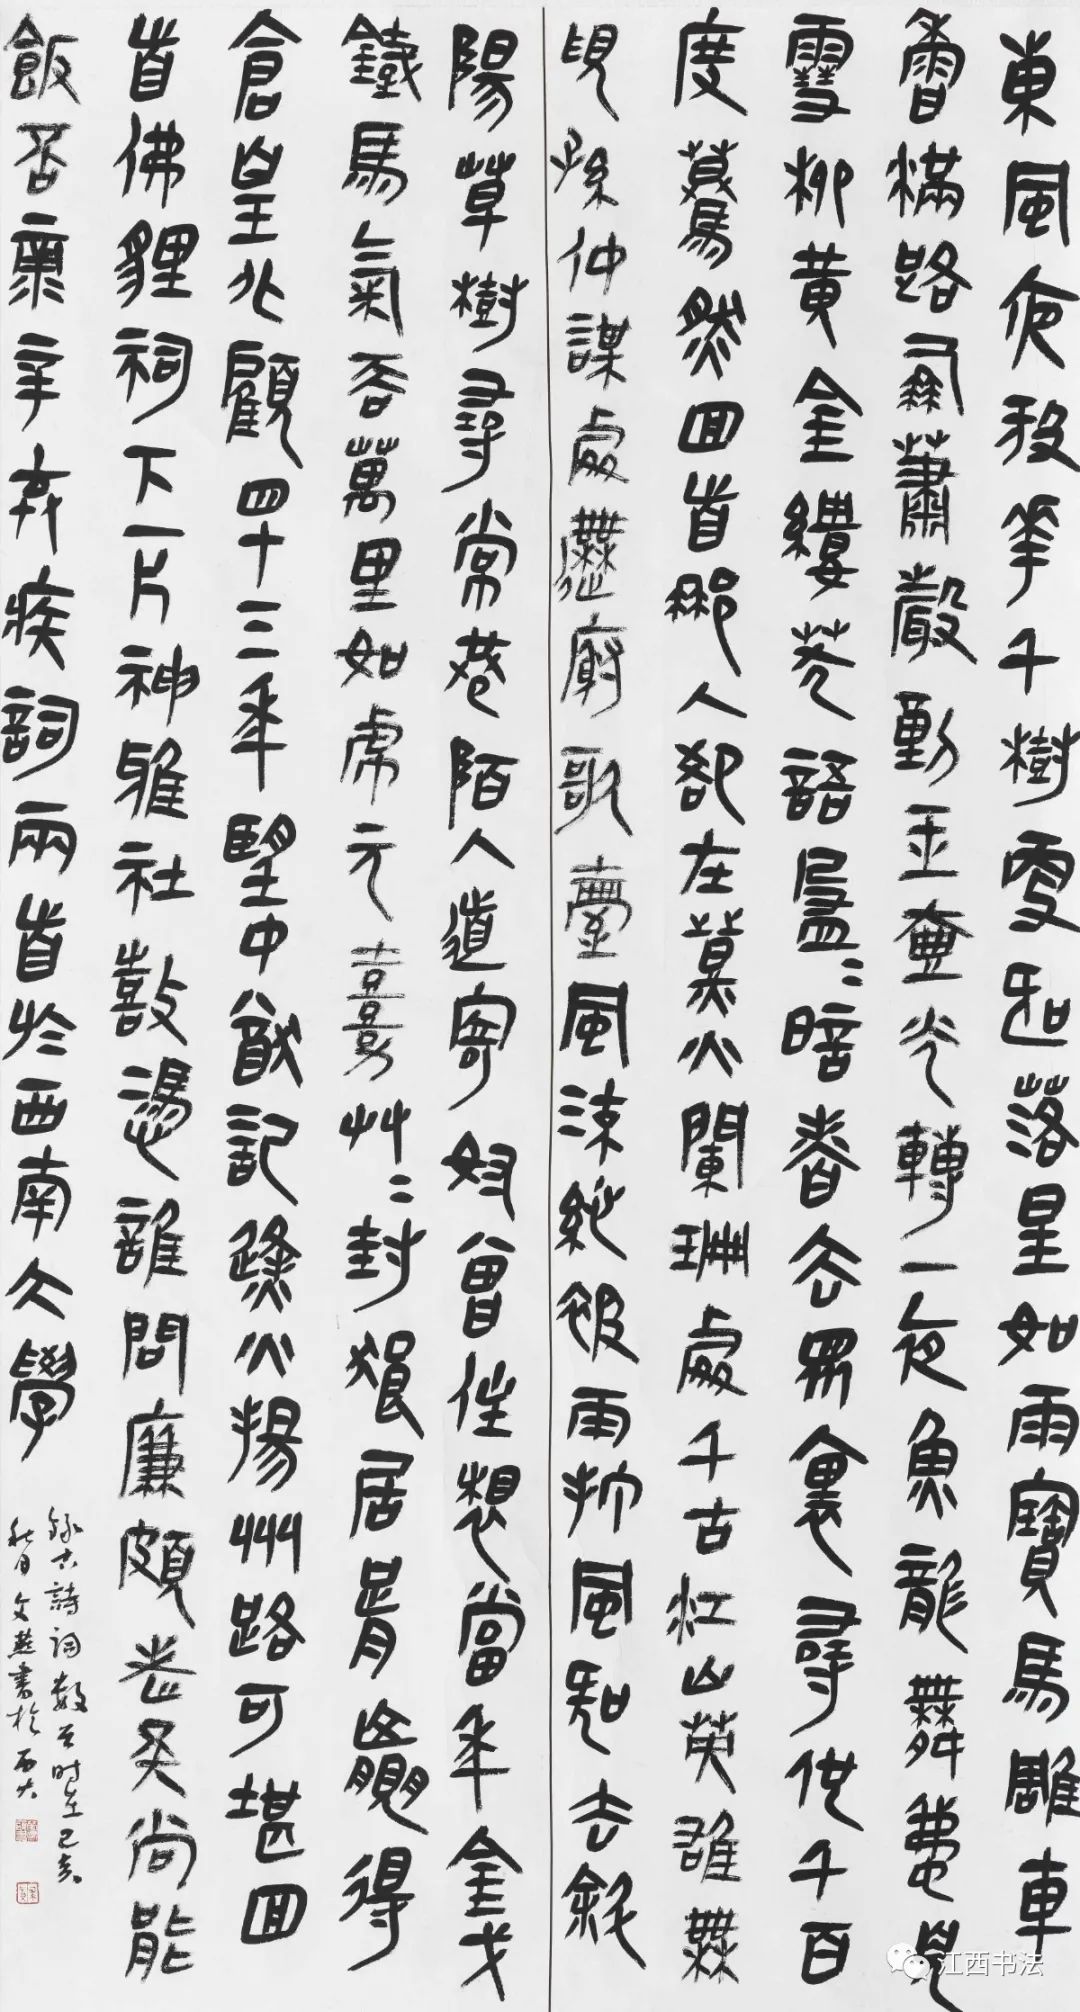 東風夜放華千樹更吹落星如雨寶馬雕車
香滿路鳳簫聲動玉壺光轉一夜魚龍舞蛾兒
雪柳黃金縷笑語盈〻暗香去眾裏尋他千百
度驀然回首那人卻在燈火闌珊處千古江山英雄無
覓孫仲謀處舞榭歌臺風流總被雨打風吹去斜
陽草樹尋常巷陌人道寄奴曾住想當年金戈
鐵馬氣吞萬里如虎元嘉草〻封狼居胥贏得
倉皇北顧四十三年望中猶記烽火揚州路可堪回
首佛貍祠下一片神鴉社鼓憑誰問廉頗老矣尚能
飯否辛弃疾詞兩首於西南大學
錄古詩詞數首時在己亥
秋日文燕書於西大
江西书法